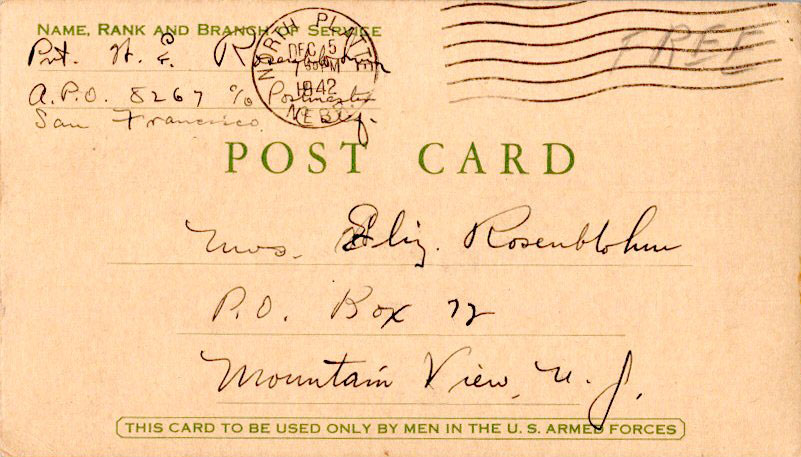 NAME, RANK AND BRANCH OF SERVICE
Pvt. H. E. Rosenblohm
A.P.O. 8267 % Postmaster
San Francisco
NORTH PLATTE
DEC 5
PM
1942
NEBR.
FREE
POST CARD
Mrs. Eliz. Rosenblohm
P.O. Box 72
Mountain View, N. J.
THIS CARD TO BE USED ONLY BY MEN IN THE U.S. ARMED FORCES